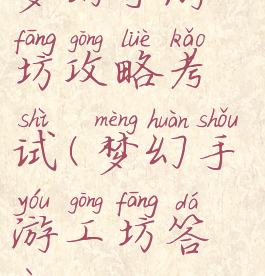 fāng gōng lüè kǎo
坊攻略考
shì mèng huàn shǒu
试(梦幻手
yóu gōng fāng dá
游工坊答